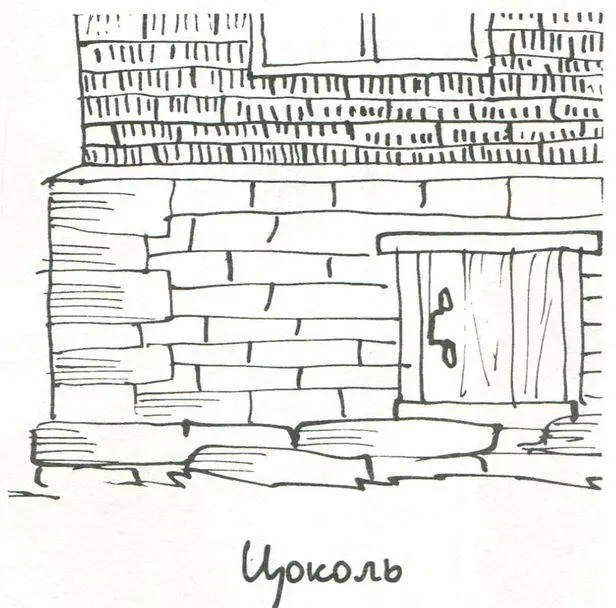 Цоколь